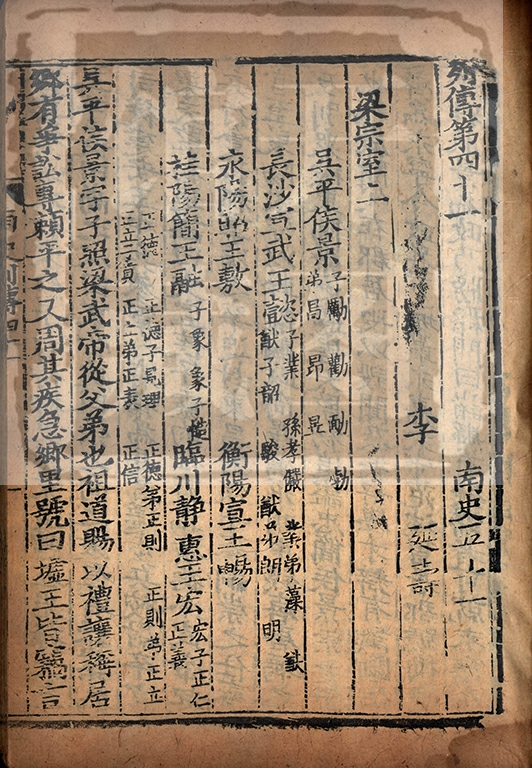 列傳第四十一 南史五十一
李 延壽
梁宗室上
吳平侯景 子勵 勸 勔 勃 弟昌 昂 昱
長沙宣武王懿 子業 孫孝儼 業弟藻 猷 猷子韶 駿 猷弟朗 明
永陽昭王敷 衡陽宣王暢
桂陽簡王融 子象 象子慥 臨川靜惠王宏 宏子正仁 正義
正德 正德子見理 正德弟正則 正則弟正立 正立子賁 正立弟正表 正信
吳平侯景字子照梁武帝從父弟也祖道賜以禮讓稱居
鄉有爭訟專賴平之又周其疾急鄉里號曰墟王皆竊言
南史列傳四十一